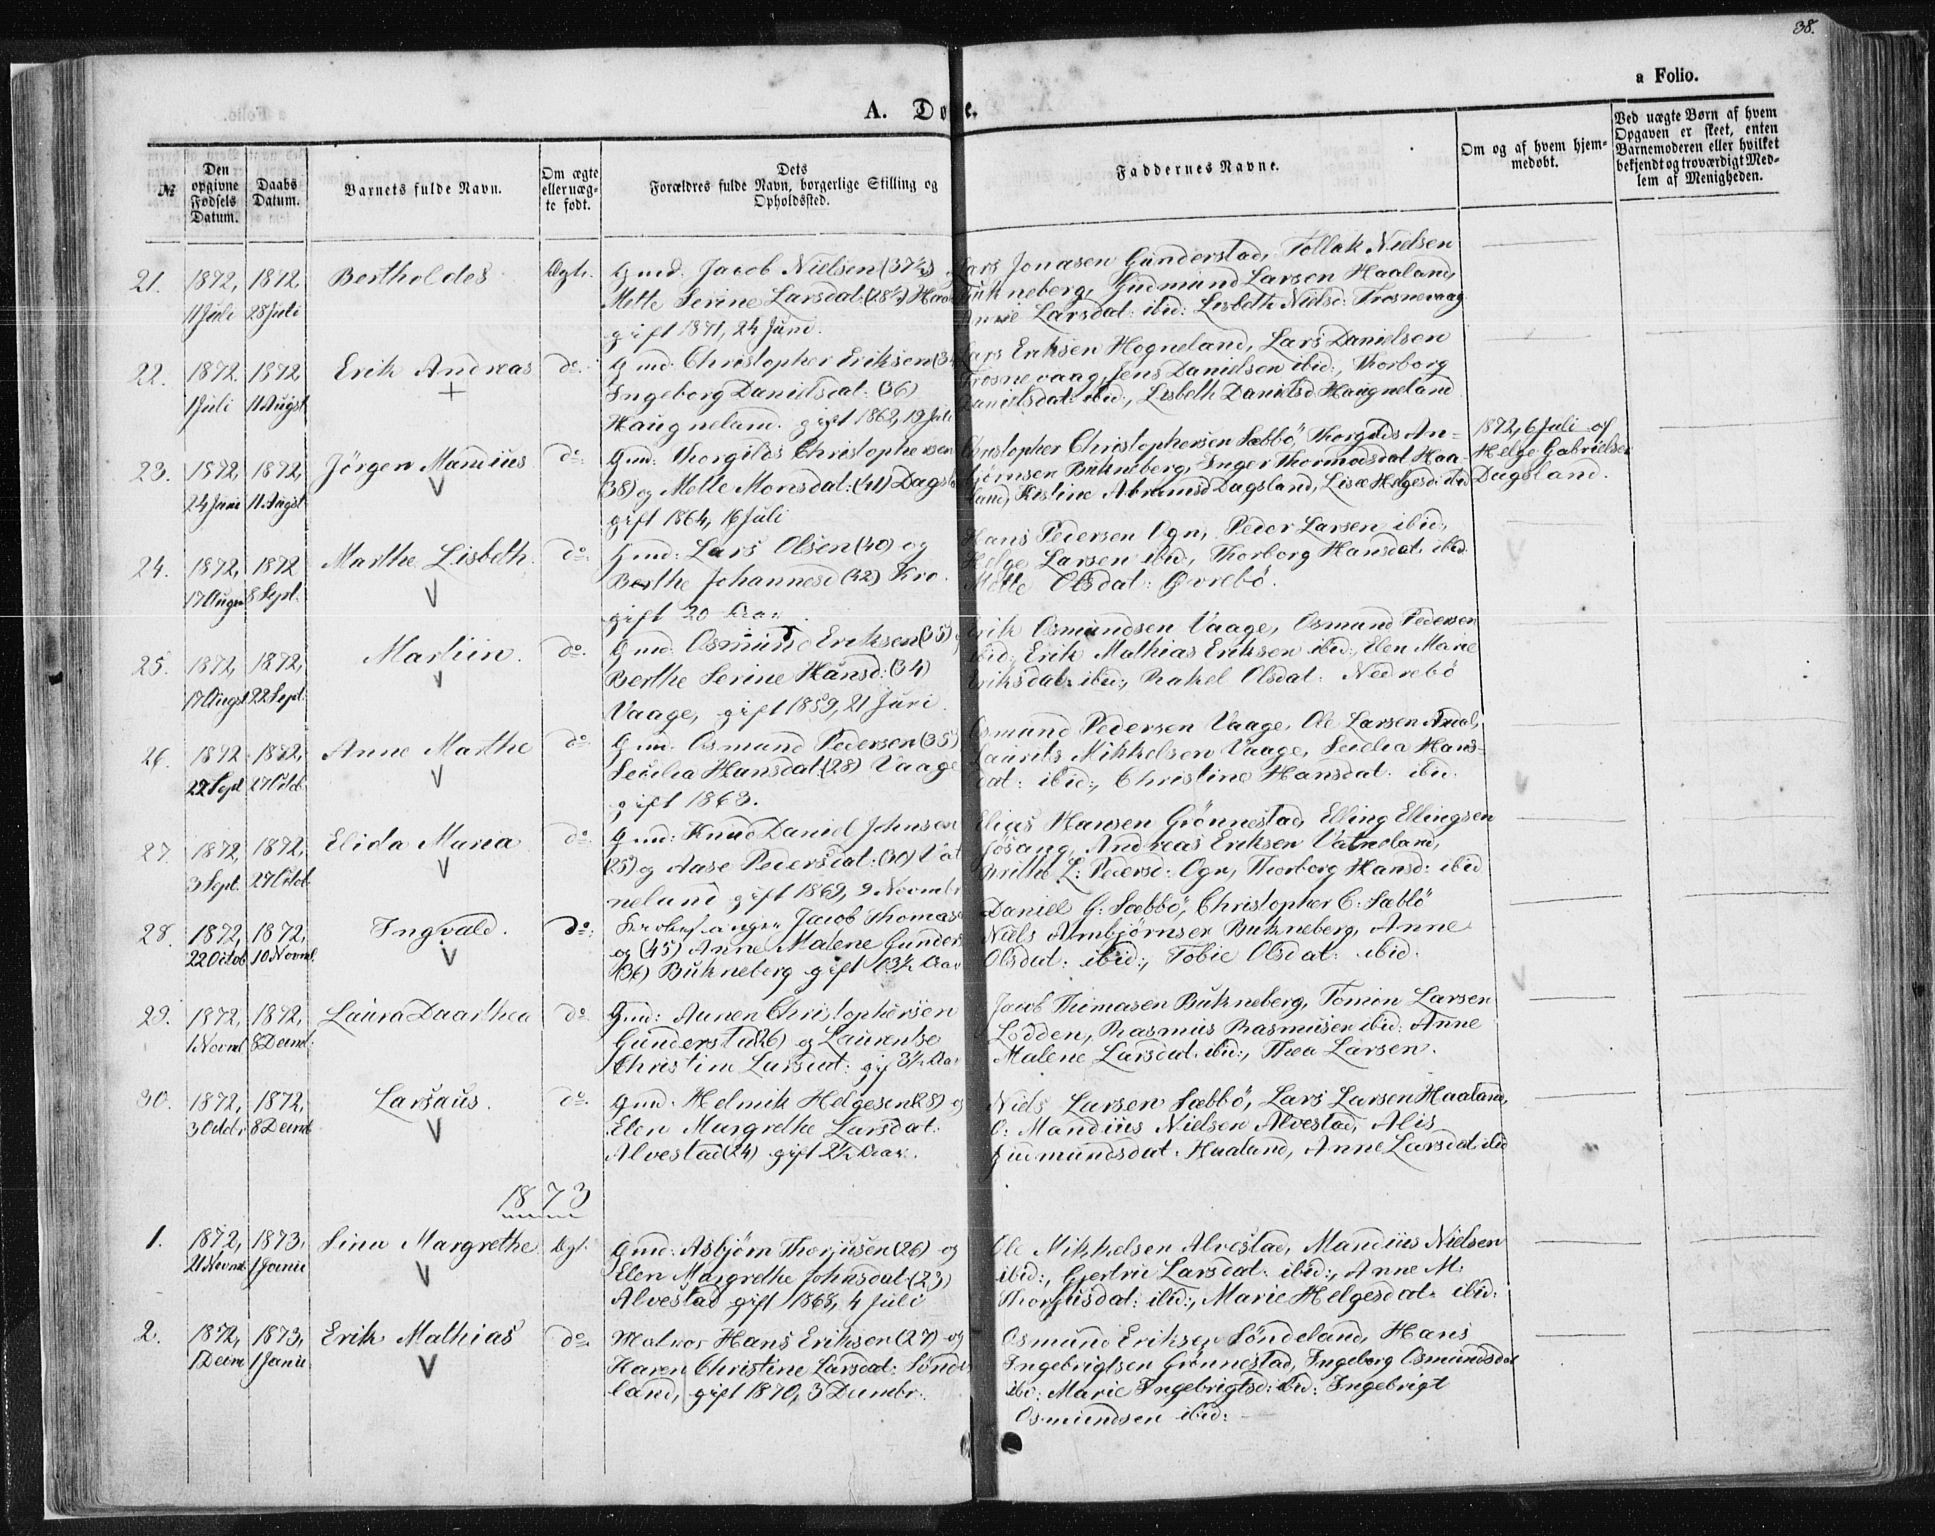 38.
a Folio.
A. Døbte.
№
Den opgivne Fødsels Datum.
Daabs Datum.
Barnets fulde Navn.
Om ægte eller uægte født.
Dets Forældres fulde Navn, borgerlige Stilling og Opholdssted.
Faddernes Navne.
Om og af hvem hjemmedøbt.
Ved uægte Børn af hvem Opgaven er skeet, enten Barnemoderen eller hvilket bekjendt og troværdigt Medlem af Menigheden.
21. 1872, 11 Juli
1872, 28 Juli
Bertholdes
Ægte.
Gmd. Jacob Nielsen (37½)
Mette Serine Larsdat: (28½)
gift 1871, 24 Juni.
Lars Jonasen Gunderstad, Tollak Nielsen
Bukneberg, Gudmund Larsen Haaland,
Anne Larsdat: ibid: Lisbeth Nielsd: Trosnevaag
22. 1872, 1 Juli
1872, 11 Augst
Erik Andreas
+
do.
Gmd. Christopher Eriksen
Ingeborg Danielsdat: (36)
Haugneland. gift 1862, 19 Juli
Lars Eriksen Hogneland, Lars Danielsen
Trosnevaag, Jens Danielsen ibid:, Thorborg
Danielsdat: ibid:, Lisbeth Danielsd Haugneland
23. 1872, 24 Juni
1872, 11 Augst
Jörgen Mandius
V
do.
Gmd: Thorgilds Christophersen
(38) og Mette Monsdat: (41) Dagsland
gift 1864, 16 Juli
Christopher Christophersen Sæbbö, Thorgilds An-
bjørnsen Bukneberg, Inger Thormodsdat Haa-
land, Kistine Abramsd Dagsland, Lise Helgesd: ibid
1872, 6 Juli af
Helge Gabrielsen
Dagsland.
24. 1872, 17 Augst
1872 8 Sept.
Marthe Lisbeth.
V
do.
Gmd: Lars Olsen (40) og
Berthe Johannesd (42) Kro.
gift 20 Aar.
Hans Pedersen Ogn, Peder Larsen ibid,
Helge Larsen ibid, Thorborg Hansdat. ibid.
Mette Olsdat: Øvrebö.
25. 1872, 17 Augst
1872, 22 Sept.
Martiin.
V
do.
Gmd. Osmund Eriksen (35)
Berthe Serine Hansd: (34)
Vaage, gift 1859, 21 Juni.
Erik Osmundsen Vaage, Osmund Pedersen
ibid:, Erik Mathias Eriksen ibid:, Elen Marie
Eriksdat: ibid:, Rakel Olsdat: Nedrebö
26. 1872 22 Sept
1872. 27 Octob
Anne Marthe
V
do.
Gmd. Osmund Pedersen (35)
Secelia Hansdat: (28) Vaage
gift 1863.
Osmund Pedersen Vaage, Ole Larsen
Laurits Mikkelsen Vaage, Secelia Hans-
dat: ibid:, Christine Hansdat: ibid.
27. 1872, 3 Sept.
1872, 27 Octob
Elida Maria
V
do.
Gmd: Knud Daniel Johnsen
(25) og Aase Pedersdat: (30) Vat
neland gift 1869, 9 Novmbr
Elias Hansen Grönnestad, Elling Ellingsen
Jösang, Andreas Eriksen Vatneland,
Brithe L: Pedersd: Ogn, Thorborg Hansd: ibid
28. 1872, 22 Octob
1872, 10 Novmb.
Ingvald.
V
do.
Jacob Thomas
og (45) Anne Malene Gunders
(36) Bukneberg gift 13½ Aar
Daniel G: Sæbbö, Christopher C: Sæbbö
Niels Arnbjørnsen Bukneberg, Anne
Olsdat: ibid:, Tobie Olsdat: ibid.
29. 1872, 1 Novmb
1872, 8 Decmb:
Laura Daarthea
do.
Gmd: Aanen Christophersen
Gunderstad (26) og Laurentse
Christine Larsdat: gif 3½ Aar
Jacob Thomasen Bukneberg, Tomin Larsen
Lodden, Rasmus Rasmusen ibid: Anne
Malene Larsdat. ibid:, Thea Larsen.
30. 1872, 3 Octbr
1872, 8 Decmb
Larsaus.
V
do.
Gmd. Helmik Helgesen (28) og
Elen Margrethe Larsdat:
Alvestad (24) gift 2½ Aar.
Niels Larsen Sæbbö, Lars Larsen Haaland,
O: Mandius Nielsen Alvestad, Alis
Gudmundsdat. Haaland, Anne Larsdat ibid
1873
1. 1872, 21 Novmb
1873, 1 Janu
Sina Margrethe
V
Ægt.
Gmd: Asbjørn Thorjusen (26) og
Elen Margrethe Johnsdat: (23)
Alvestad gift 1868, 4 Juli
Ole Mikkelsen Alvestad, Mandius Nielsen
ibid:, Gjertrue Larsdat: ibid:, Anne M:
Thorjusdat: ibid:, Marie Helgesdat. ibid:
2. 1872, 1 Decm
1873, 1 Janu
Erik Mathias
V
do.
Matros Hans Eriksen (27) og
Karen Christine Larsdat: Sönde
land, gift 1870, 3 Decmbr.
Osmund Eriksen Söndeland, Hans
Ingebrigtsen Grönnestad, Ingeborg Osmundsdat
ibd: Marie Ingebrigtsd: ibid: Ingebrigt
Osmundsen ibid: